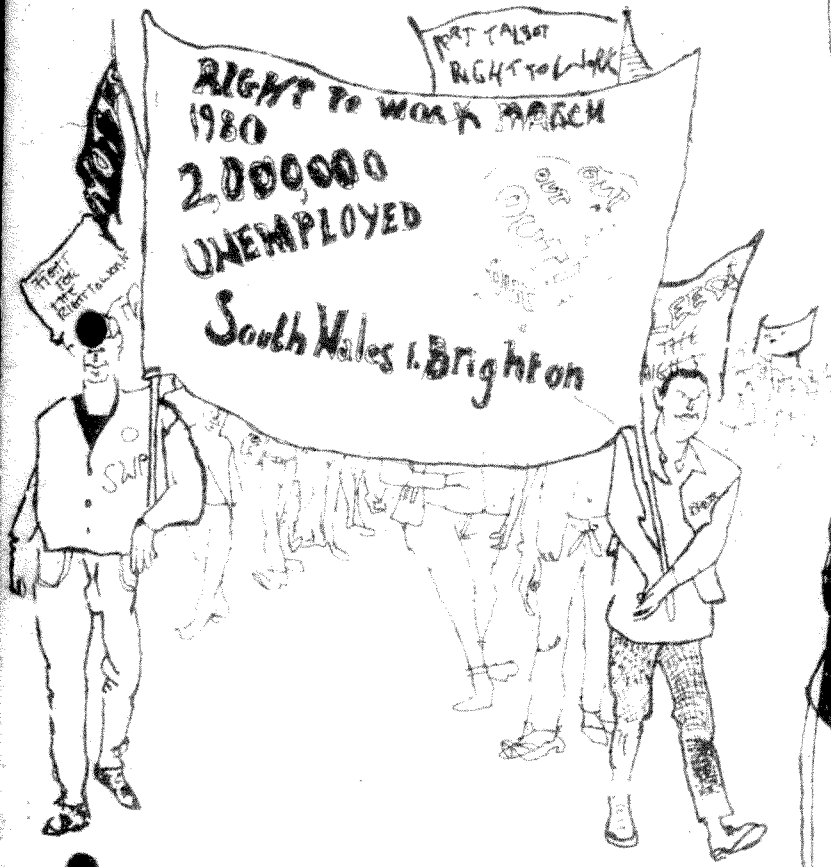 PORT TALBOT
RIGHT TO WORK
RIGHT To WORK MARCH
1980
2,000,000
UNEMPLOYED
South Wales
Brighton
OUT OUT
OUT
FIGHT
FOR
THE
RIGHT TO WORK
LEEDS
THE
RIGHT
SWP